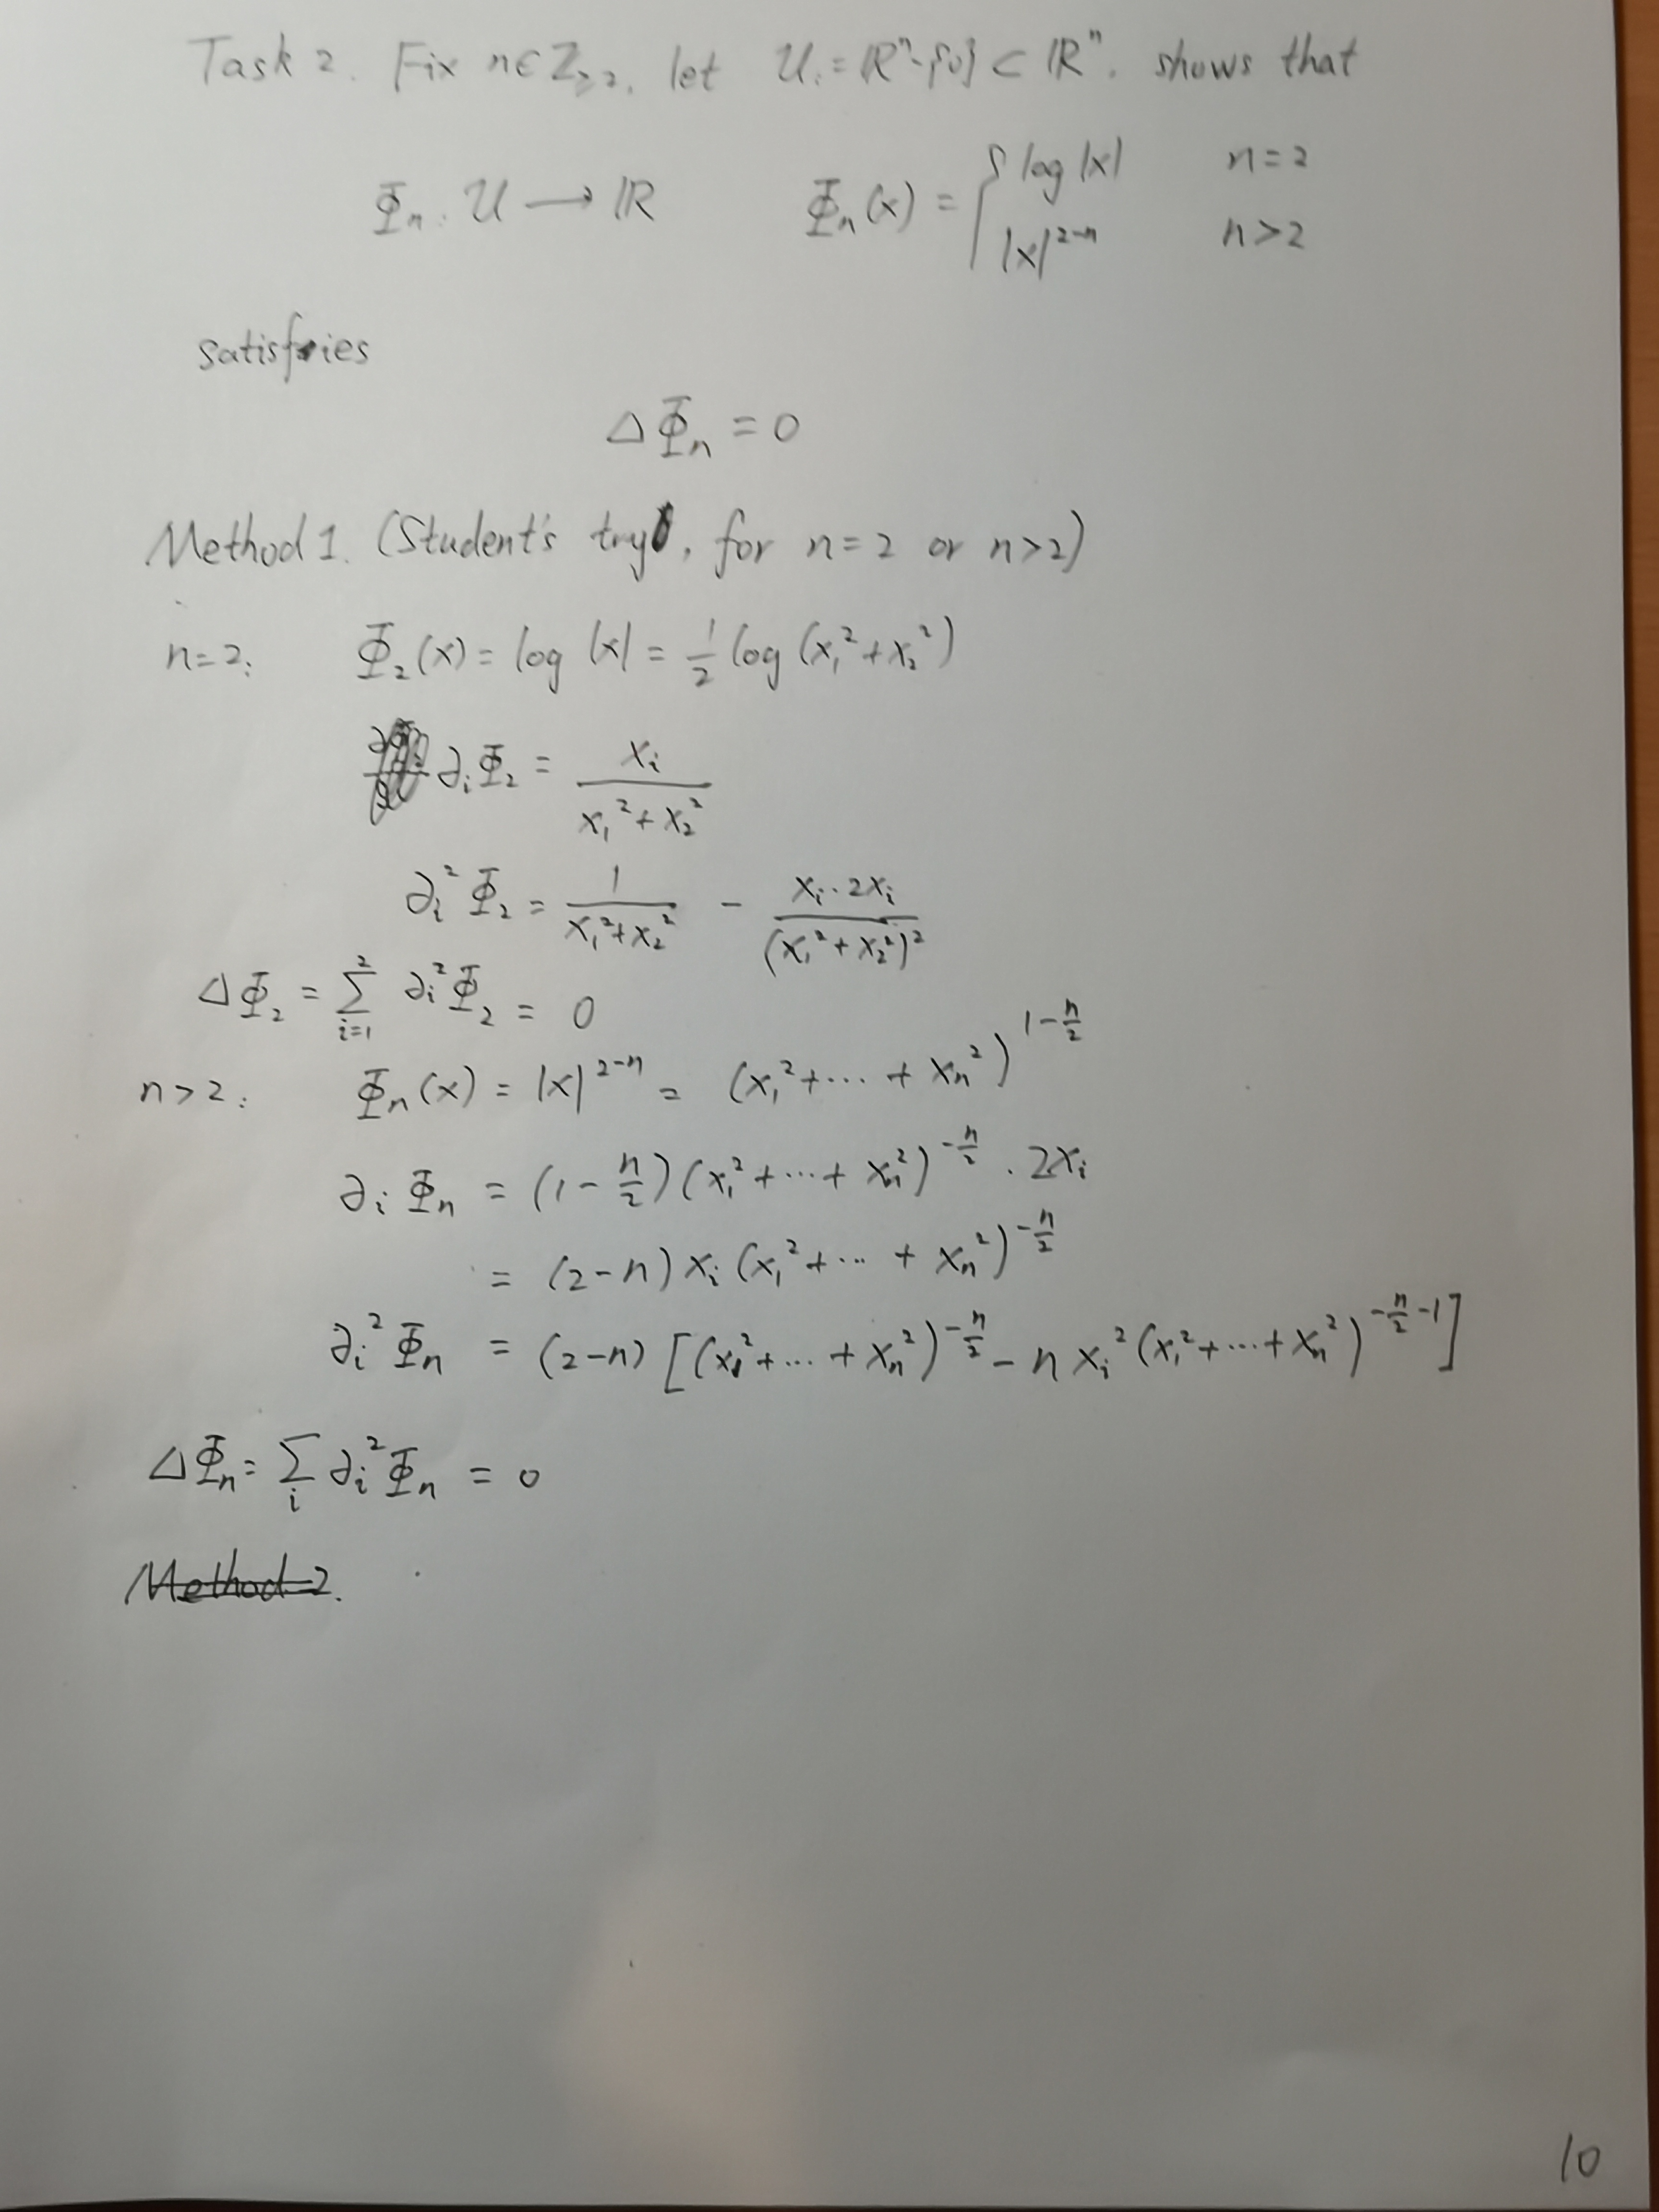 Task 2. Fix n∈Z≥2, let U:=ℝⁿ-{0}⊂ℝⁿ. shows that
Φₙ: U → ℝ Φₙ(x) = { log|x| n=2
|x|^{2-n} n>2
satisfies
ΔΦₙ = 0
Method 1. (Student's try, for n=2 or n>2)
n=2: Φ₂(x) = log |x| = 1/2 log (x₁²+x₂²)
∂ᵢΦ₂ = xᵢ/(x₁²+x₂²)
∂ᵢ²Φ₂ = 1/(x₁²+x₂²) - xᵢ·2xᵢ/(x₁²+x₂²)²
ΔΦ₂ = ∑_{i=1}^{2} ∂ᵢ²Φ₂ = 0
n>2: Φₙ(x) = |x|^{2-n} = (x₁²+⋯+xₙ²)^{1-n/2}
∂ᵢΦₙ = (1-n/2)(x₁²+⋯+xₙ²)^{-n/2}·2xᵢ
= (2-n)xᵢ(x₁²+⋯+xₙ²)^{-n/2}
∂ᵢ²Φₙ = (2-n)[(x₁²+⋯+xₙ²)^{-n/2} - n xᵢ²(x₁²+⋯+xₙ²)^{-n/2-1}]
ΔΦₙ = ∑ᵢ ∂ᵢ²Φₙ = 0
Method 2.
10